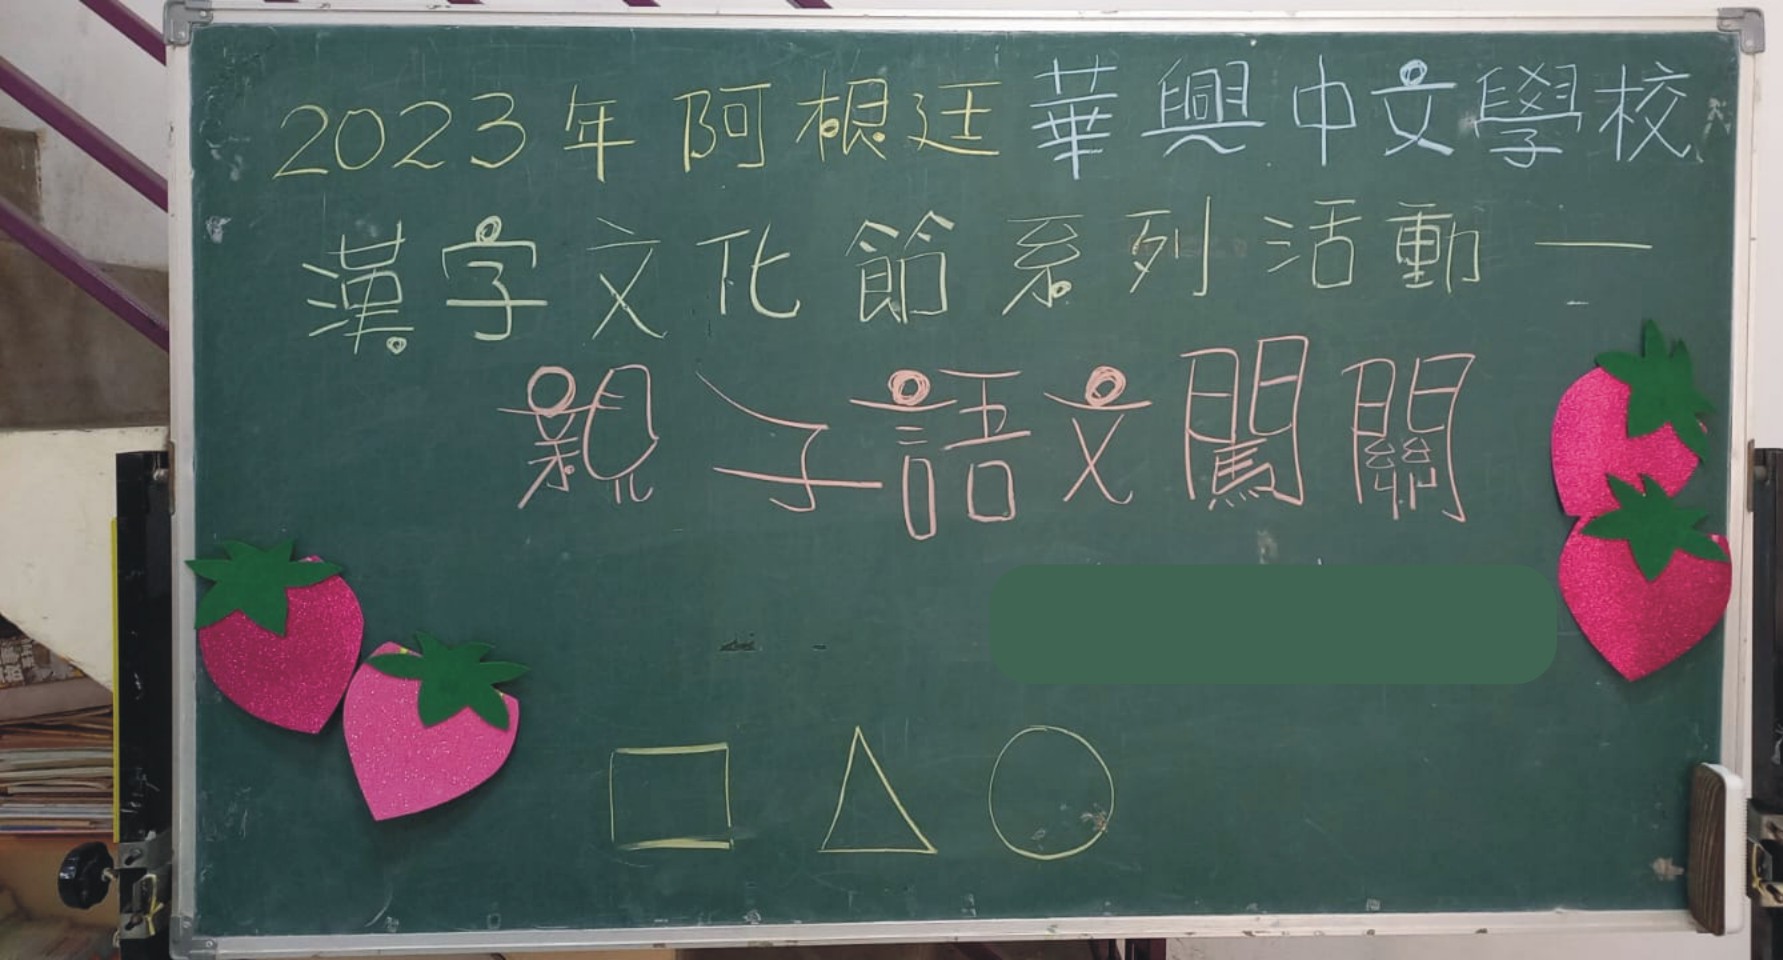 2023年阿根廷華興中文學校
漢字文化節系列活動—
親子語文闖關